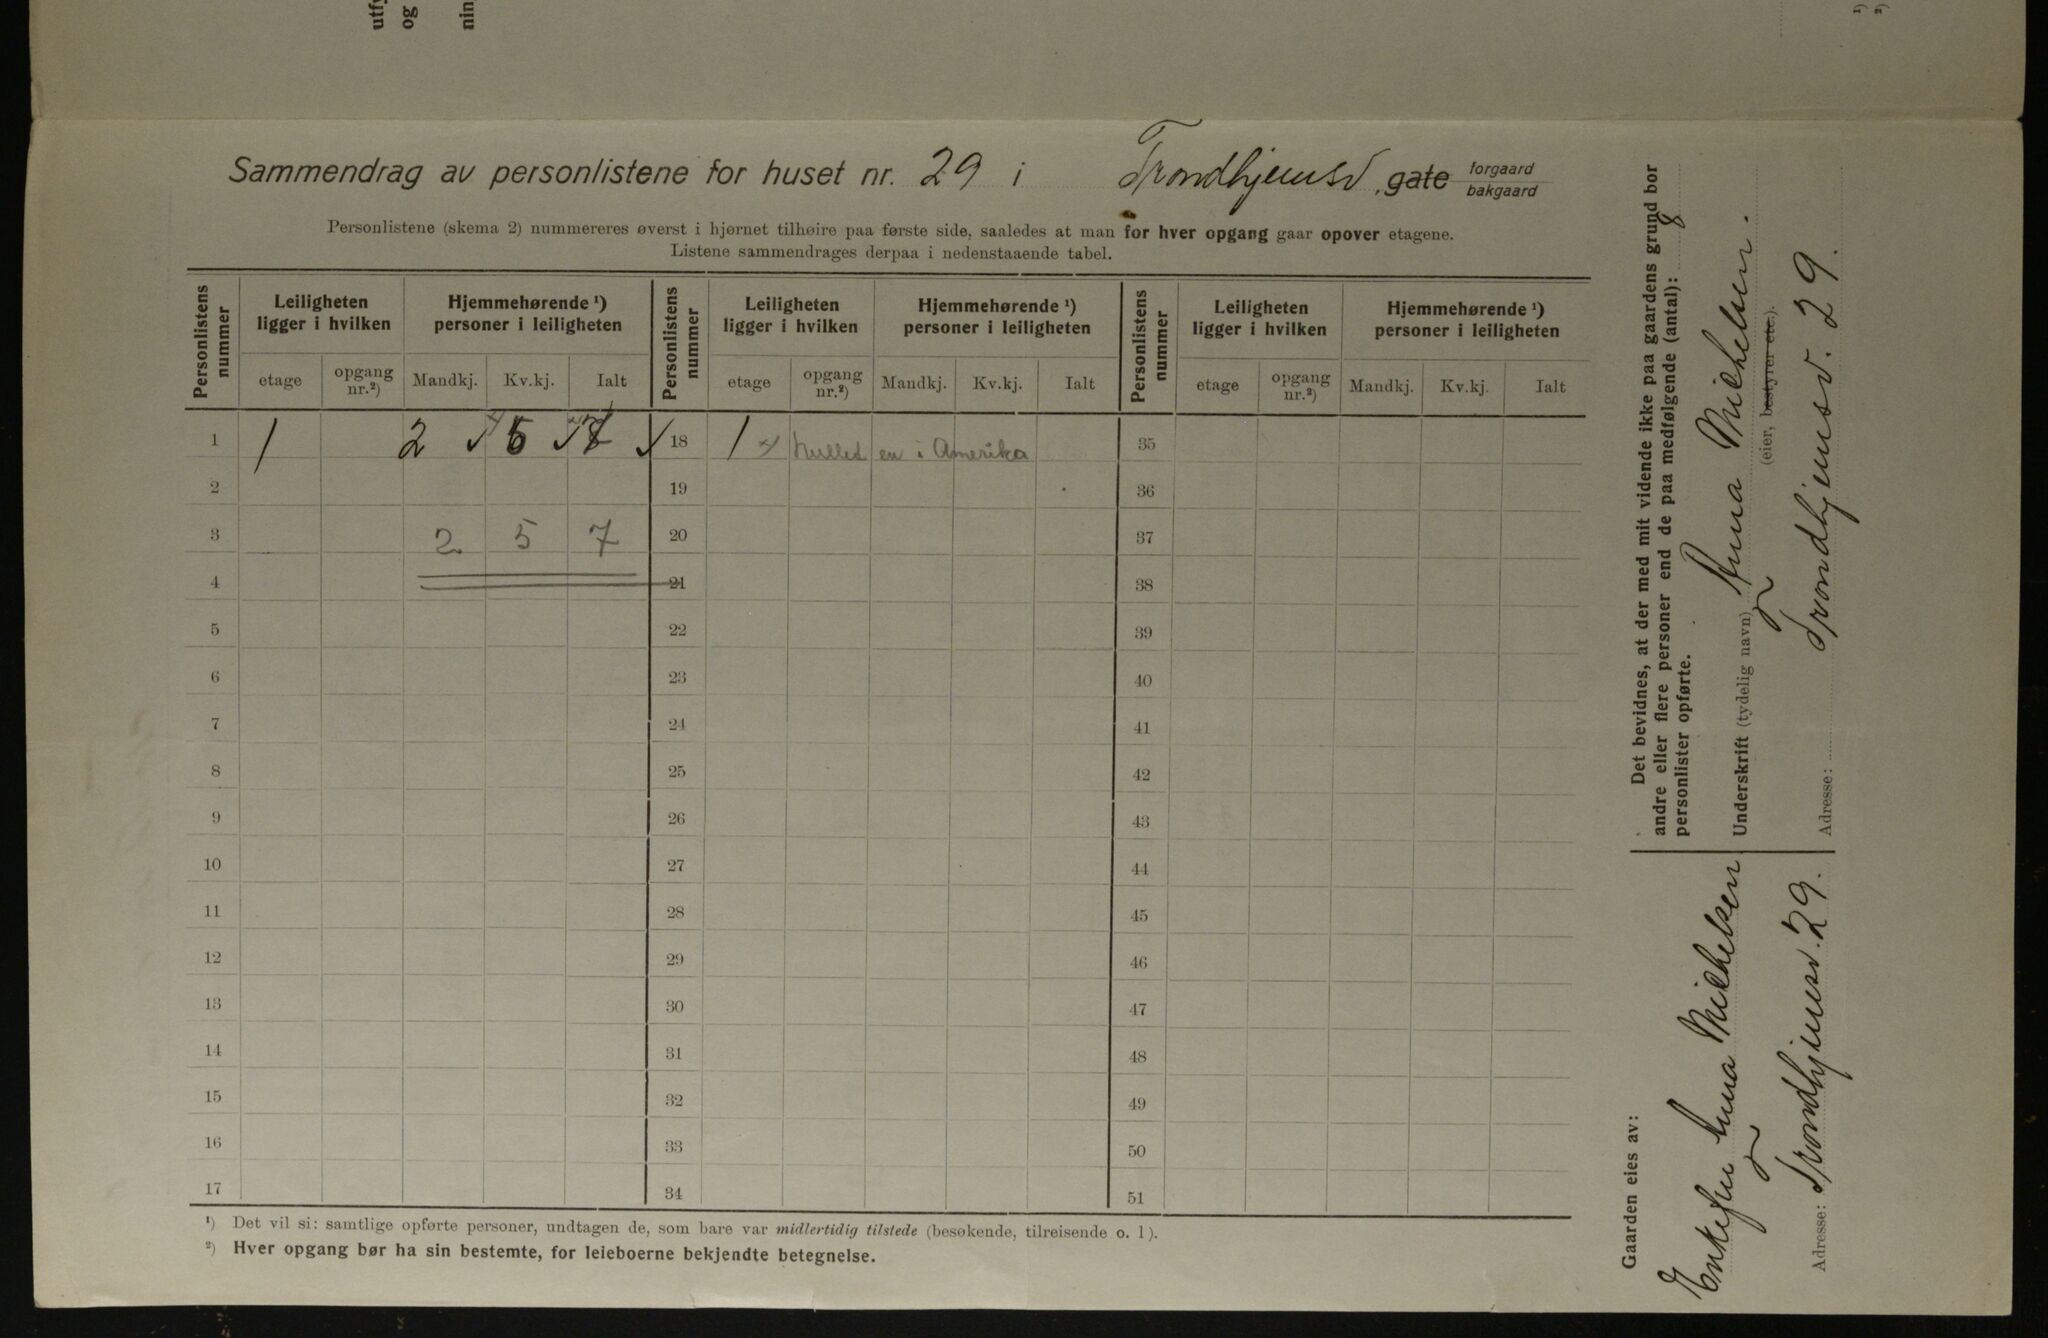 utfy
og
nin
1)
2)
Sammendrag av personlistene for huset nr. 29 i Trondhjemsv. gate forgaard bakgaard
Personlistene (skema 2) nummereres øverst i hjørnet tilhøire paa første side, saaledes at man for hver opgang gaar opover etagene.
Listene sammendrages derpaa i nedenstaaende tabel.
Personlistens nummer | Leiligheten ligger i hvilken | Hjemmehørende 1) personer i leiligheten | Personlistens nummer | Leiligheten ligger i hvilken | Hjemmehørende 1) personer i leiligheten | Personlistens nummer | Leiligheten ligger i hvilken | Hjemmehørende 1) personer i leiligheten
etage | opgang nr.2) | Mandkj. | Kv.kj. | Ialt | etage | opgang nr.2) | Mandkj. | Kv.kj. | Ialt | etage | opgang nr.2) | Mandkj. | Kv.kj. | Ialt
1 | 1 | 2 | 5 | 7 | 18 | 1 x) en i Amerika | 35
2 | 19 | 36
3 | 2 | 5 | 7 | 20 | 37
4 | 21 | 38
5 | 22 | 39
6 | 23 | 40
7 | 24 | 41
8 | 25 | 42
9 | 26 | 43
10 | 27 | 44
11 | 28 | 45
12 | 29 | 46
13 | 30 | 47
14 | 31 | 48
15 | 32 | 49
16 | 33 | 50
17 | 34 | 51
1) Det vil si: samtlige opførte personer, undtagen de, som bare var midlertidig tilstede (besøkende, tilreisende o. l).
2) Hver opgang bør ha sin bestemte, for leieboerne bekjendte betegnelse.
Det bevidnes, at der med mit vidende ikke paa gaardens grund bor
andre eller flere personer end de paa medfølgende (antal): 8
personlister opførte.
Underskrift (tydelig navn) Anna Mikkelsen.
(eier, bestyrer etc.).
Adresse: Trondhjemsv. 29.
Gaarden eies av:
Enkefru Anna Mikkelsen
Adresse: Trondhjemsv. 29.